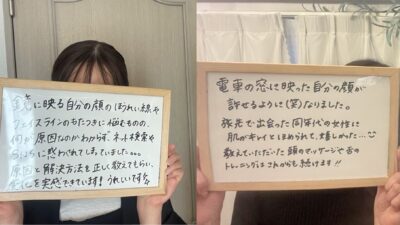 鏡に映る自分の顔のほうれい線や
フェイスラインのもたつきに悩むものの、
何が原因なのかわからず、ネット検索や
に惑わされてしまっていました。。。
原因と解決方法を正しく教えてもらい、
を実感できています！うれしいです
電車の窓に映った自分の顔が
許せるように(笑)なりました。
旅先で出会った同年代の女性に
肌がキレイとほめられて、嬉しかった…
教えていただいた頭のマッサージや舌の
トレーニングはこれからも続けます!!